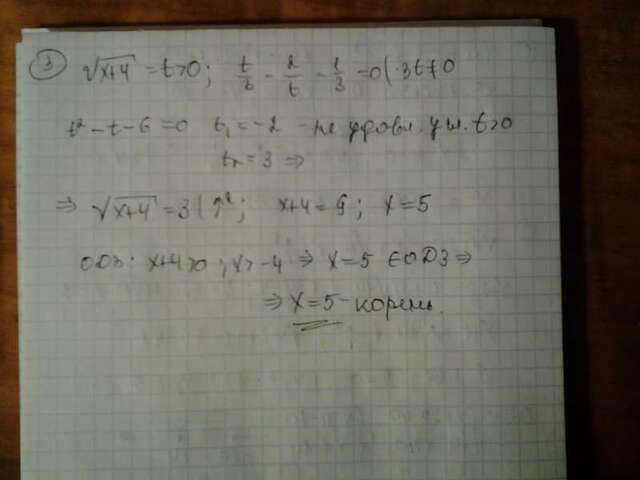 3 √x+4 = t>0; t/6 - 2/t - 1/3 = 0 (·3t≠0
t² - t - 6 = 0 t₁ = -2 - не удовл. усл. t>0
t₂ = 3 ⇒
⇒ √x+4 = 3 (↑²; x+4 = 9; x = 5
ОДЗ: x+4>0; x>-4 ⇒ x=5 ∈ ОДЗ ⇒
⇒ x=5 - корень.